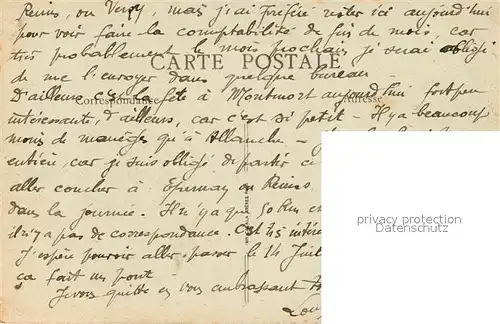 Reims, ou Vuoy, mais j'ai préféré rester ici aujourd'hui
pour voir faire la comptabilité de fin de mois, car
très probablement le mois prochain je serai obligé
CARTE POSTALE
de me l'envoyer dans quelque bureau -
Correspondance
Adresse
D'ailleurs c'est la fête à Montmort aujourd'hui fort peu
intéressante, d'ailleurs, car c'est si petit - Il y a beaucoup
moins de manèges qu'à Allanche -
entier, car je suis obligé de partir
aller coucher à Epernay ou Reims
dans la journée. Il n'y a que 50 Km et
il n'y a pas de correspondance. C'est
J'espère pouvoir aller passer le 14 Juil
ça fait un pont
Je vous quitte en vous embrassant
privacy protection
Datenschutz